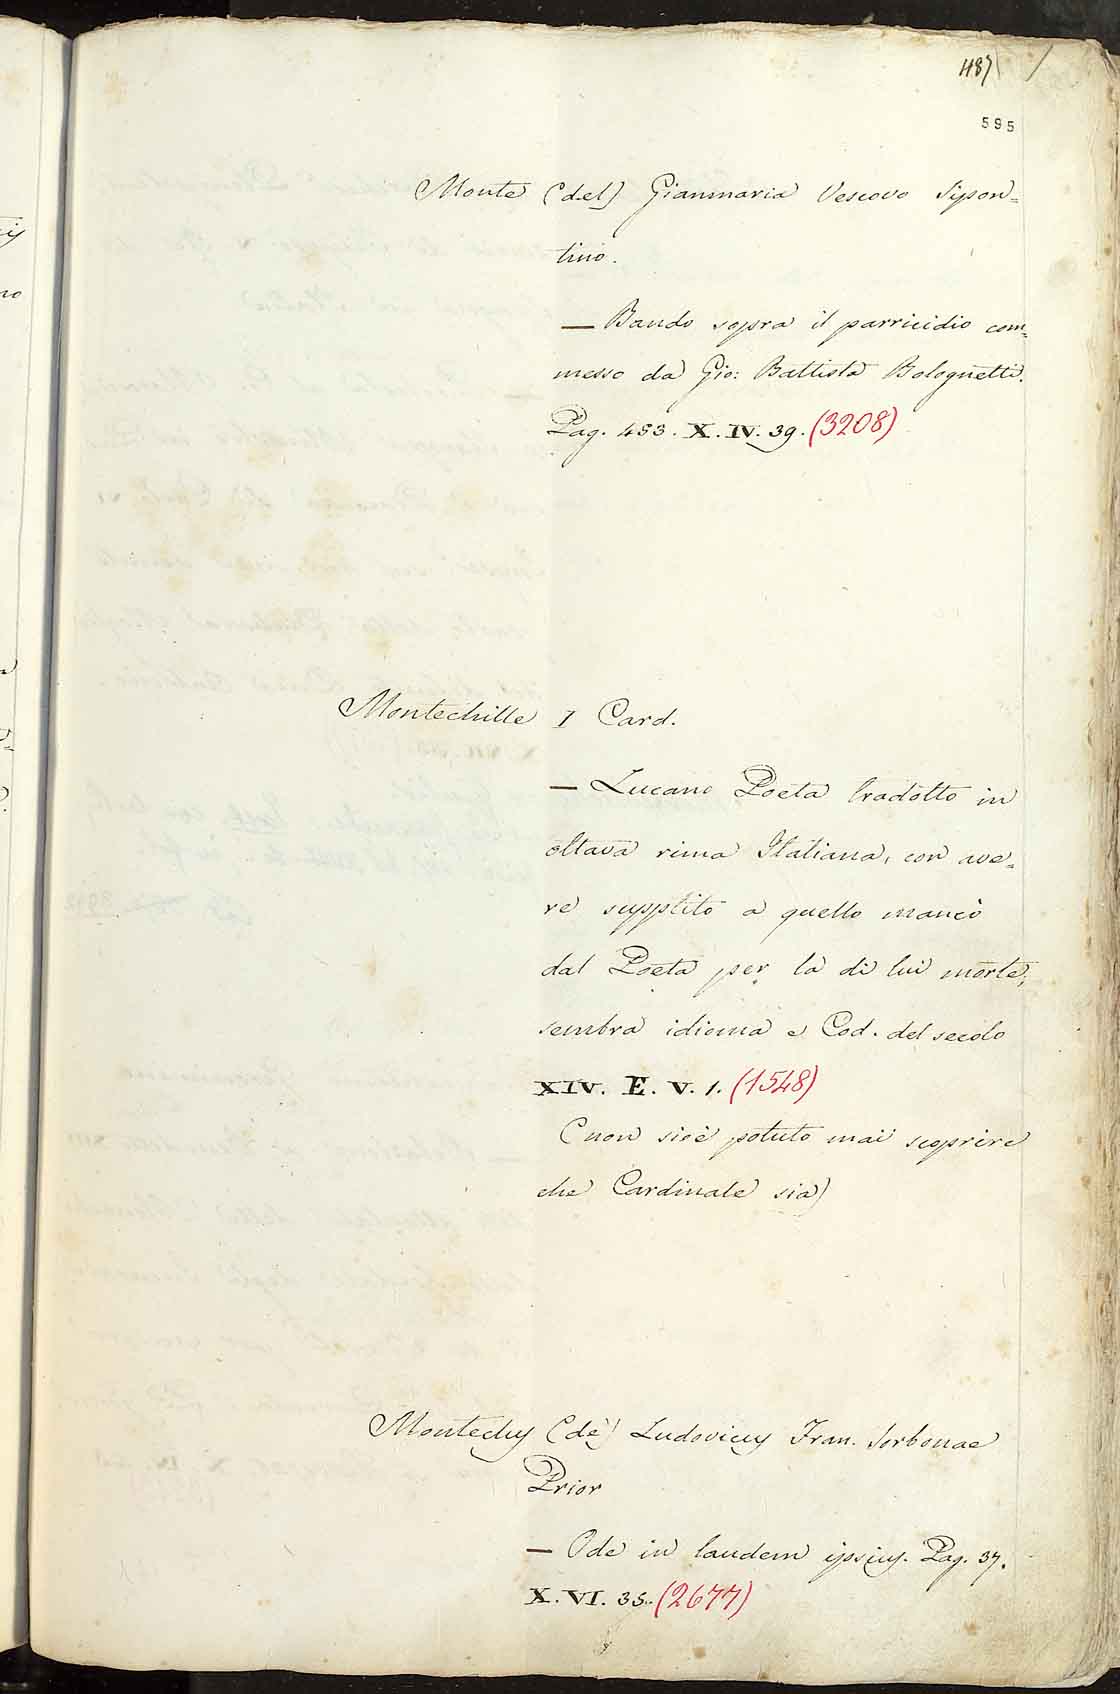 487
595
Monte (del) Gianmaria Vescovo Sipon=
tino.
— Bando sopra il parricidio com=
messo da Gio: Battista Bolognetti.
Pag. 453. X. IV. 39. (3208)
Montechille I Card.
— Lucano Poeta tradotto in
ottava rima Italiana, con ave=
re supplito a quello mancò
dal Poeta per la di lui morte;
sembra idioma e Cod. del secolo
XIV. E. V. 1. (1548)
(non sioè potuto mai scoprire
che Cardinale sia)
Montechy (dè) Ludovicus Fran. Sorbonae
Prior
— Ode in laudem ipsius. Pag. 37.
X. VI. 35. (2677)